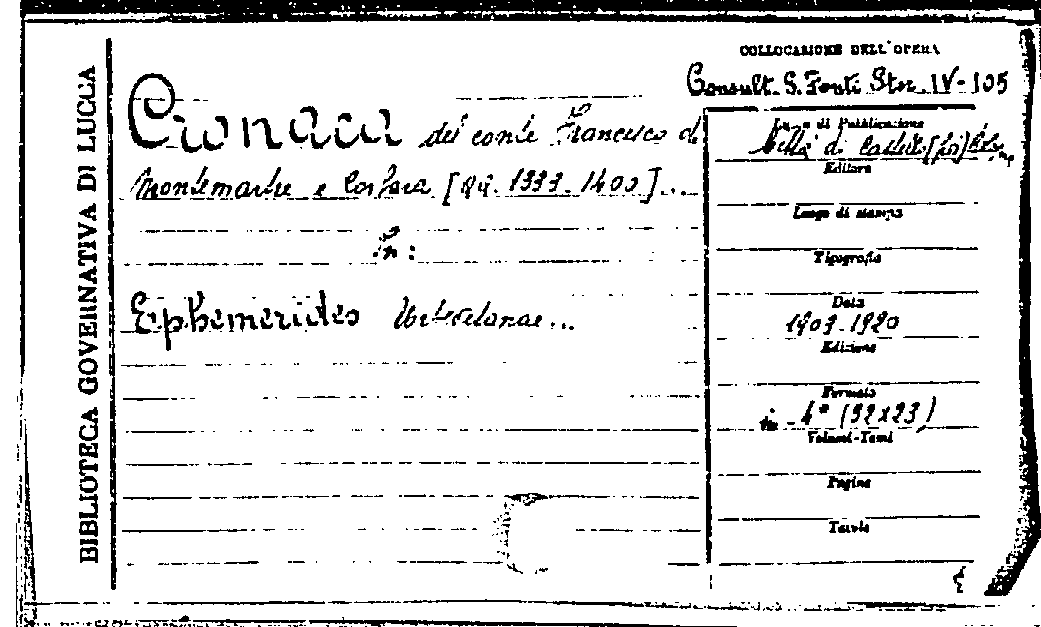 BIBLIOTECA GOVERNATIVA DI LUCCA
Cronaca del conte Francesco di
Montemarte e Corbara [aa. 1333-1400]...
In:
Ephemerides Urbevetanae...
COLLOCAZIONE DELL'OPERA
Consult. S. Fonti Stor. IV-105
Luogo di Pubblicazione
Città di Castello [poi] Bologna
Editore
Luogo di stampa
Tipografia
Data
1903-1920
Edizione
Formato
in-4° (32x23)
Volumi-Tomi
Pagine
Tavole